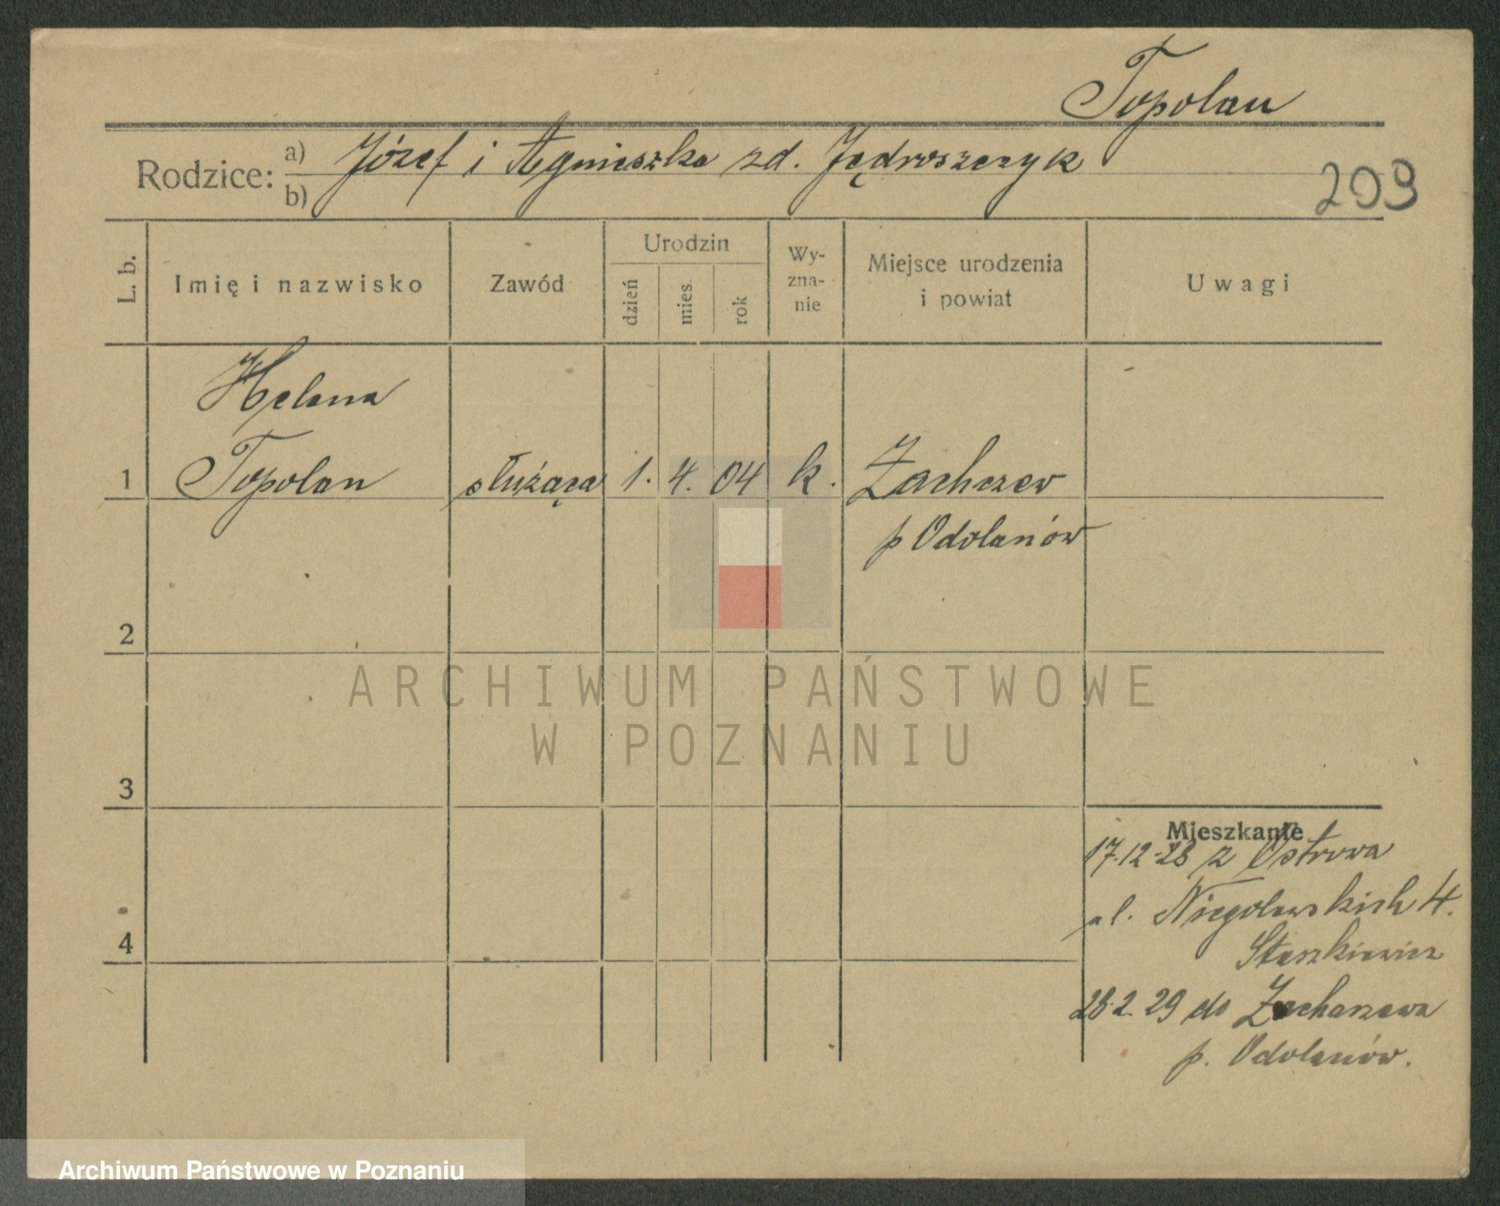 Topolan
Rodzice: a) Józef i Agnieszka zd. Jędroszczyk
b)
209
L. b.
Imię i nazwisko
Zawód
Urodzin
dzień
mies.
rok
Wy-
zna-
nie
Miejsce urodzenia
i powiat
Uwagi
Helena
1 Topolan służąca 1. 4. 04 k. Zachczew
p Odolanów
2
ARCHIWUM PAŃSTWOWE
W POZNANIU
3
Mieszkanie
17.12-28 z Ostrowa
ul. Niegolewskich 4.
Staszkiewicz
4
28.2.29 do Zacharzewa
p. Odolanów.
Archiwum Państwowe w Poznaniu